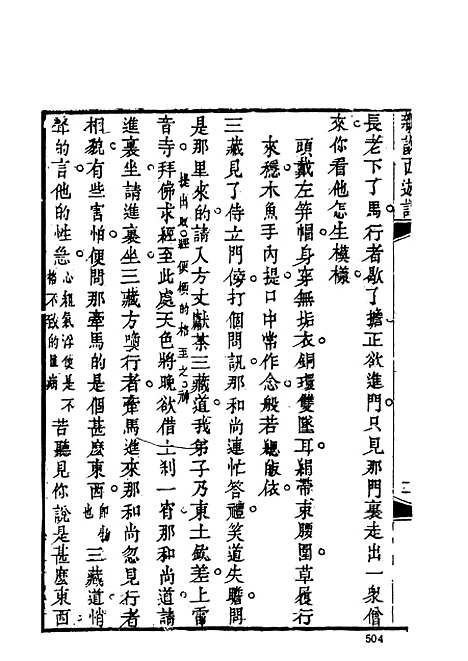 新說西遊記
長老下了馬行者歇了擔正欲進門只見那門裏走出一衆僧
來你看他怎生模樣
頭戴左笄帽身穿無垢衣銅環雙墜耳絹帶束腰圍草履行
來穩木魚手內提口中常作念般若總皈依
三藏見了侍立門傍打個問訊那和尚連忙答禮笑道失瞻問
是那里來的請入方丈獻茶三藏道我弟子乃東土欽差上雷
音寺拜佛求經至此處天色將晚欲借上剎一宵那和尚道請
提出取經便領的格至之神
進裏坐請進裏坐三藏方喚行者牽馬進來那和尚忽見行者
相貌有些害怕便問那牽馬的是個甚麽東西即物也三藏道悄
聲的言他的性急心粗氣浮便是不格不致的溫病若聽見你說是甚麽東西
504